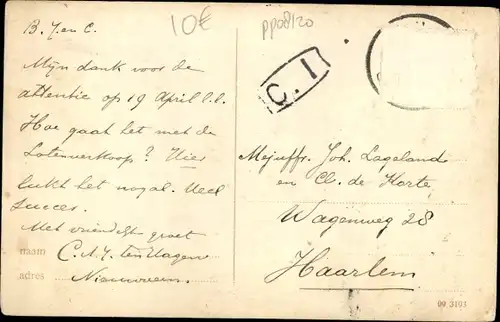 10€
pp08/20
B. J. en C.
Mijn dank voor de
attentie op 19 April l.l.
Hoe gaat het met de
Lotenverkoop? Hier
lukt het nogal. Veel
succes.
Met vriendelijk groet
naam C. A. J. ten Hagen
adres Nieuwveen.
C. 1
Mejuffr. Joh. Lageland
en Cl. de Korte
Wagenweg 28
Haarlem
09 3103